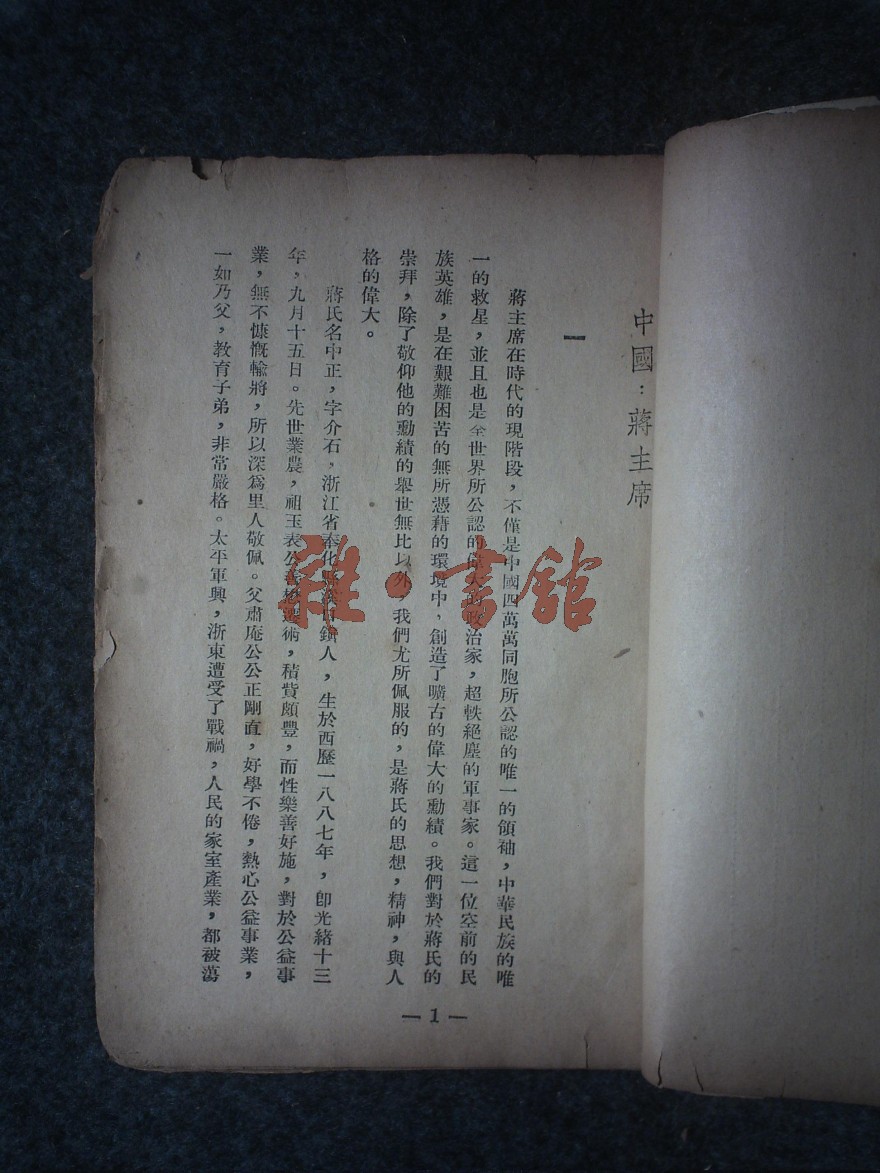 中國：蔣主席
一
蔣主席在時代的現階段，不僅是中國四萬萬同胞所公認的唯一的領袖，中華民族的唯
一的救星，並且也是全世界所公認的偉大的政治家，超軼絕塵的軍事家。這一位空前的民
族英雄，是在艱難困苦的無所憑藉的環境中，創造了曠古的偉大的勳績。我們對於蔣氏的
崇拜，除了敬仰他的勳績的舉世無比以外，我們尤所佩服的，是蔣氏的思想，精神，與人
格的偉大。
蔣氏名中正，字介石，浙江省奉化縣溪口鎮人，生於西歷一八八七年，卽光緒十三
年，九月十五日。先世業農，祖玉表公術，積貲頗豐，而性樂善好施，對於公益事
業，無不慷慨輸將，所以深爲里人敬佩。父肅庵公公正剛直，好學不倦，熱心公益事業，
一如乃父，教育子弟，非常嚴格。太平軍興，浙東遭受了戰禍，人民的家室產業，都被蕩
—1—
雜·書館